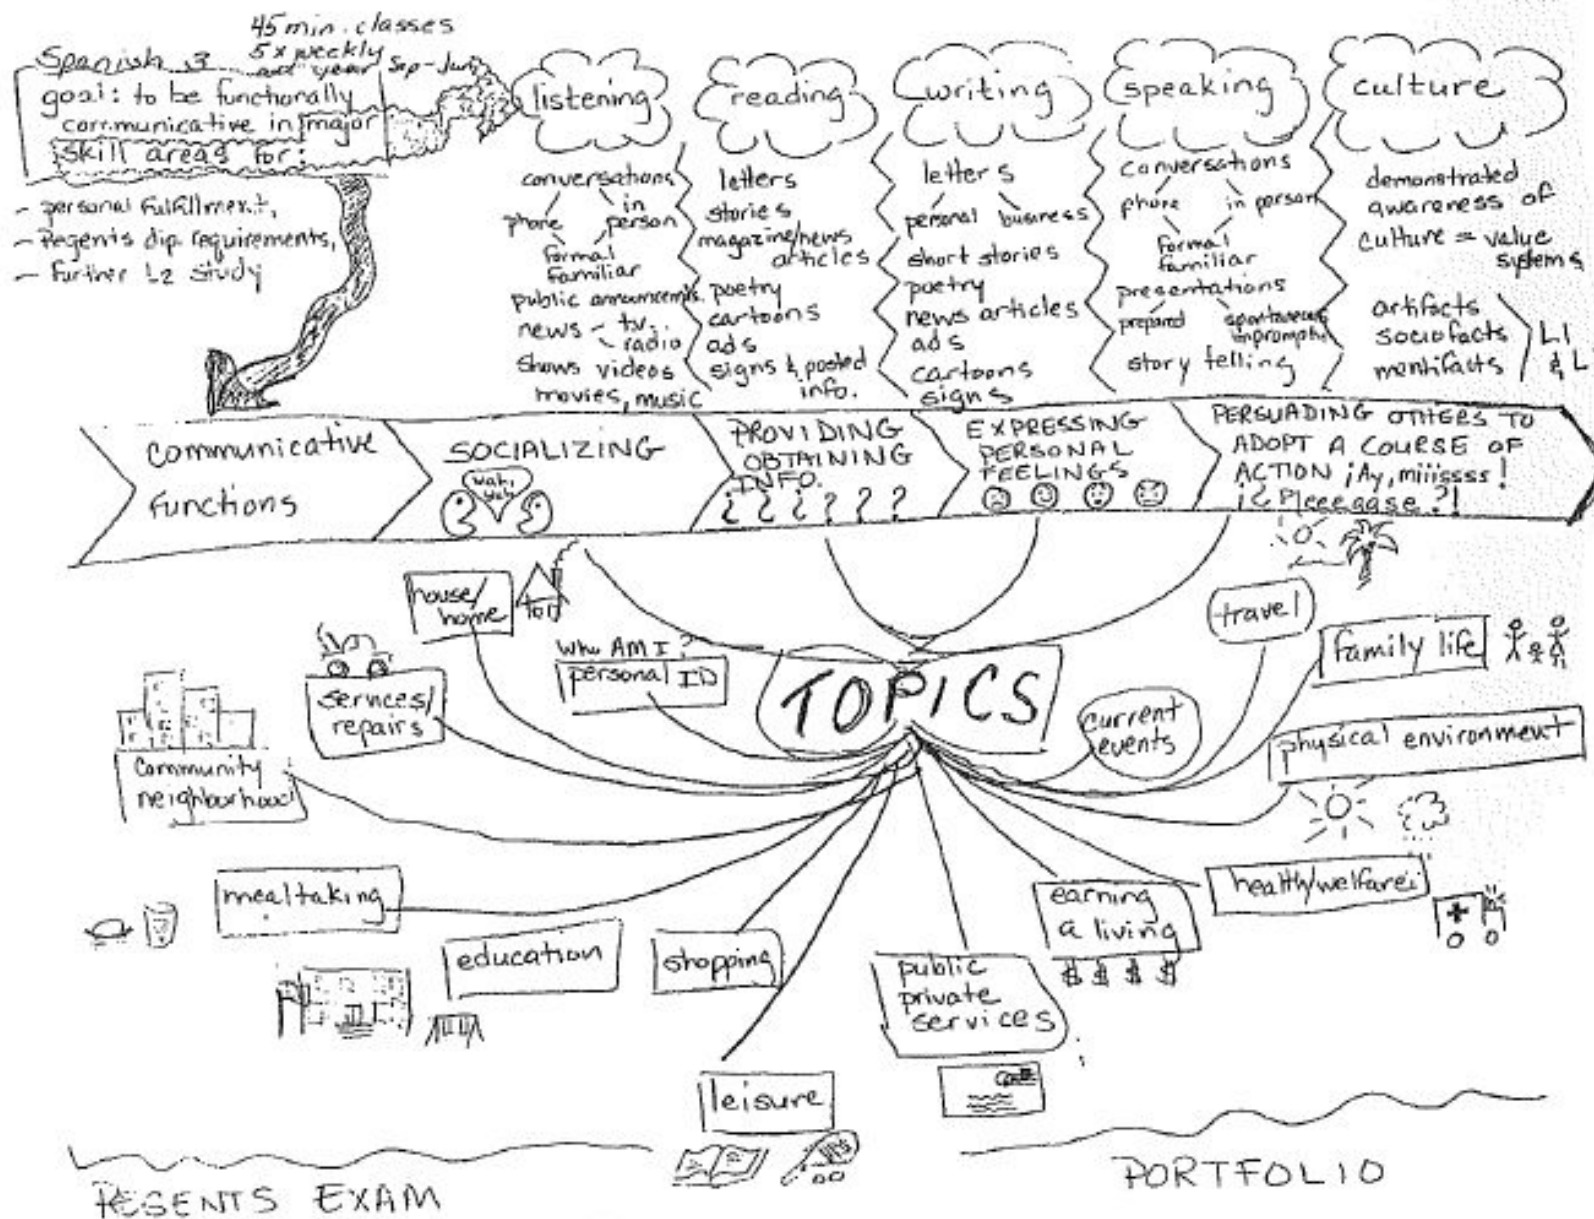 Spanish 3
45 min. classes
5 x weekly
year Sep-June
goal: to be functionally
communicative in major
skill areas for:
- personal fulfillment,
- Regents dip. requirements,
- further L2 study
listening
conversations
phone in person
formal
familiar
public announcemts.
news - t.v.
- radio
shows videos
movies, music
reading
letters
stories
magazine/news
articles
poetry
cartoons
ads
signs & posted
info.
writing
letters
personal business
short stories
poetry
news articles
ads
cartoons
signs
speaking
conversations
phone in person
formal
familiar
presentations
prepared spontaneous
impromptu
story telling
culture
demonstrated
awareness of
culture = value
systems
artifacts
sociofacts
mentifacts
L1
& L
communicative
functions
SOCIALIZING
wah,
wah
PROVIDING
OBTAINING
INFO.
¿ ¿ ¿ ? ? ?
EXPRESSING
PERSONAL
FEELINGS
PERSUADING OTHERS TO
ADOPT A COURSE OF
ACTION ¡Ay, miiissss!
¡¿ Pleeeease?!
TOPICS
house/
home
Who AM I?
personal ID
services/
repairs
community
neighborhood
mealtaking
education
shopping
leisure
public
private
services
earning
a living
$ $ $ $
health/welfare
physical environment
family life
travel
current
events
REGENTS EXAM
PORTFOLIO